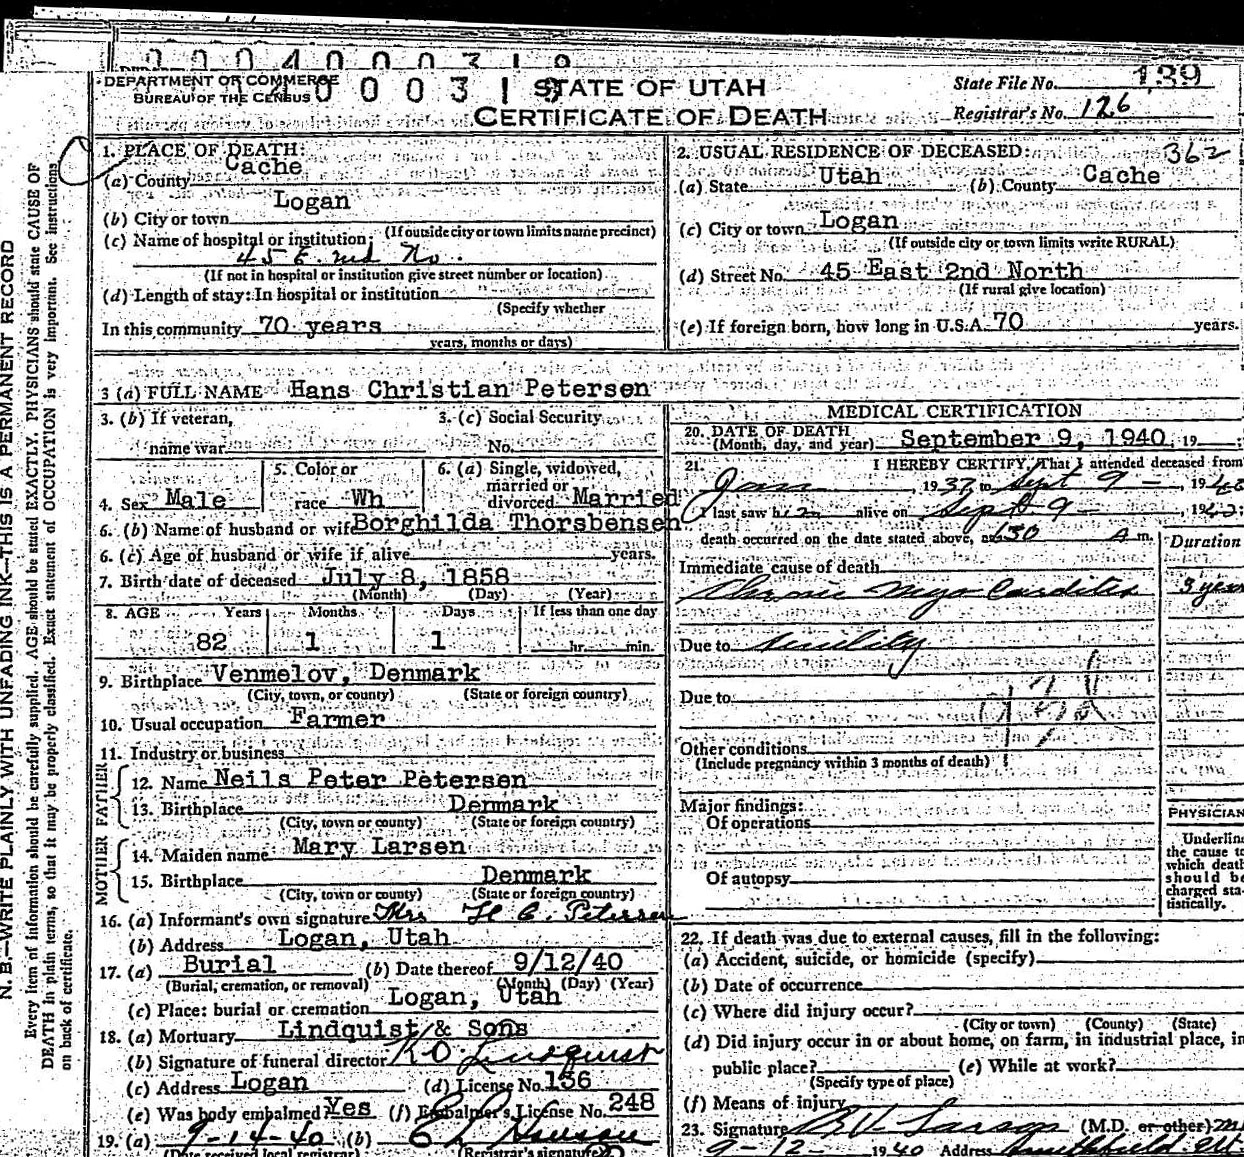 0004000319
DEPARTMENT OF COMMERCE
BUREAU OF THE CENSUS
STATE OF UTAH
CERTIFICATE OF DEATH
State File No. 139
Registrar's No. 126
1. PLACE OF DEATH:
(a) County Cache
(b) City or town Logan
(If outside city or town limits name precinct)
(c) Name of hospital or institution:
45 E. 2nd No.
(If not in hospital or institution give street number or location)
(d) Length of stay: In hospital or institution
(Specify whether
In this community 70 years
years, months or days)
2. USUAL RESIDENCE OF DECEASED: 362
(a) State Utah (b) County Cache
(c) City or town Logan
(If outside city or town limits write RURAL)
(d) Street No. 45 East 2nd North
(If rural give location)
(e) If foreign born, how long in U.S.A. 70 years.
3 (a) FULL NAME Hans Christian Petersen
3. (b) If veteran,
name war
3. (c) Social Security
No.
4. Sex Male
5. Color or
race Wh
6. (a) Single, widowed,
married or
divorced Married
6. (b) Name of husband or wife Borghilda Thorsbensen
6. (c) Age of husband or wife if alive years.
7. Birth date of deceased July 8, 1858
(Month) (Day) (Year)
8. AGE Years Months Days If less than one day
82 1 1 hr. min.
9. Birthplace Venmelov, Denmark
(City, town, or county) (State or foreign country)
10. Usual occupation Farmer
11. Industry or business
FATHER
12. Name Neils Peter Petersen
13. Birthplace Denmark
(City, town or county) (State or foreign country)
MOTHER
14. Maiden name Mary Larsen
15. Birthplace Denmark
(City, town or county) (State or foreign country)
16. (a) Informant's own signature Mrs H C. Petersen
(b) Address Logan, Utah
17. (a) Burial (b) Date thereof 9/12/40
(Burial, cremation, or removal) (Month) (Day) (Year)
(c) Place: burial or cremation Logan, Utah
18. (a) Mortuary Lindquist & Sons
(b) Signature of funeral director K O Lindquist
(c) Address Logan (d) License No. 136
(e) Was body embalmed? Yes (f) Embalmer's License No. 248
19. (a) 9-14-40 (b) E L Hanson
(Date received local registrar) (Registrar's signature)
MEDICAL CERTIFICATION
20. DATE OF DEATH
(Month, day, and year) September 9, 1940, 19
21. I HEREBY CERTIFY, That I attended deceased from
Jan, 1937, to Sept 9 -, 19
I last saw him alive on Sept 9 -, 19
death occurred on the date stated above, at 630 A m.
Duration
Immediate cause of death
Chronic Myo Carditis 3 years
Due to Senility
Due to
Other conditions
(Include pregnancy within 3 months of death)
Major findings:
Of operations
Of autopsy
PHYSICIAN
Underline
the cause to
which death
should be
charged sta-
tistically.
22. If death was due to external causes, fill in the following:
(a) Accident, suicide, or homicide (specify)
(b) Date of occurrence
(c) Where did injury occur?
(City or town) (County) (State)
(d) Did injury occur in or about home, on farm, in industrial place, in
public place? (e) While at work?
(Specify type of place)
(f) Means of injury
23. Signature B V Larson (M.D. or other) M
9-12- 1940 Address Smithfield, Ut
N. B.—WRITE PLAINLY WITH UNFADING INK—THIS IS A PERMANENT RECORD
Every item of information should be carefully supplied. AGE should be stated EXACTLY. PHYSICIANS should state CAUSE OF
DEATH in plain terms, so that it may be properly classified. Exact statement of OCCUPATION is very important. See instructions
on back of certificate.